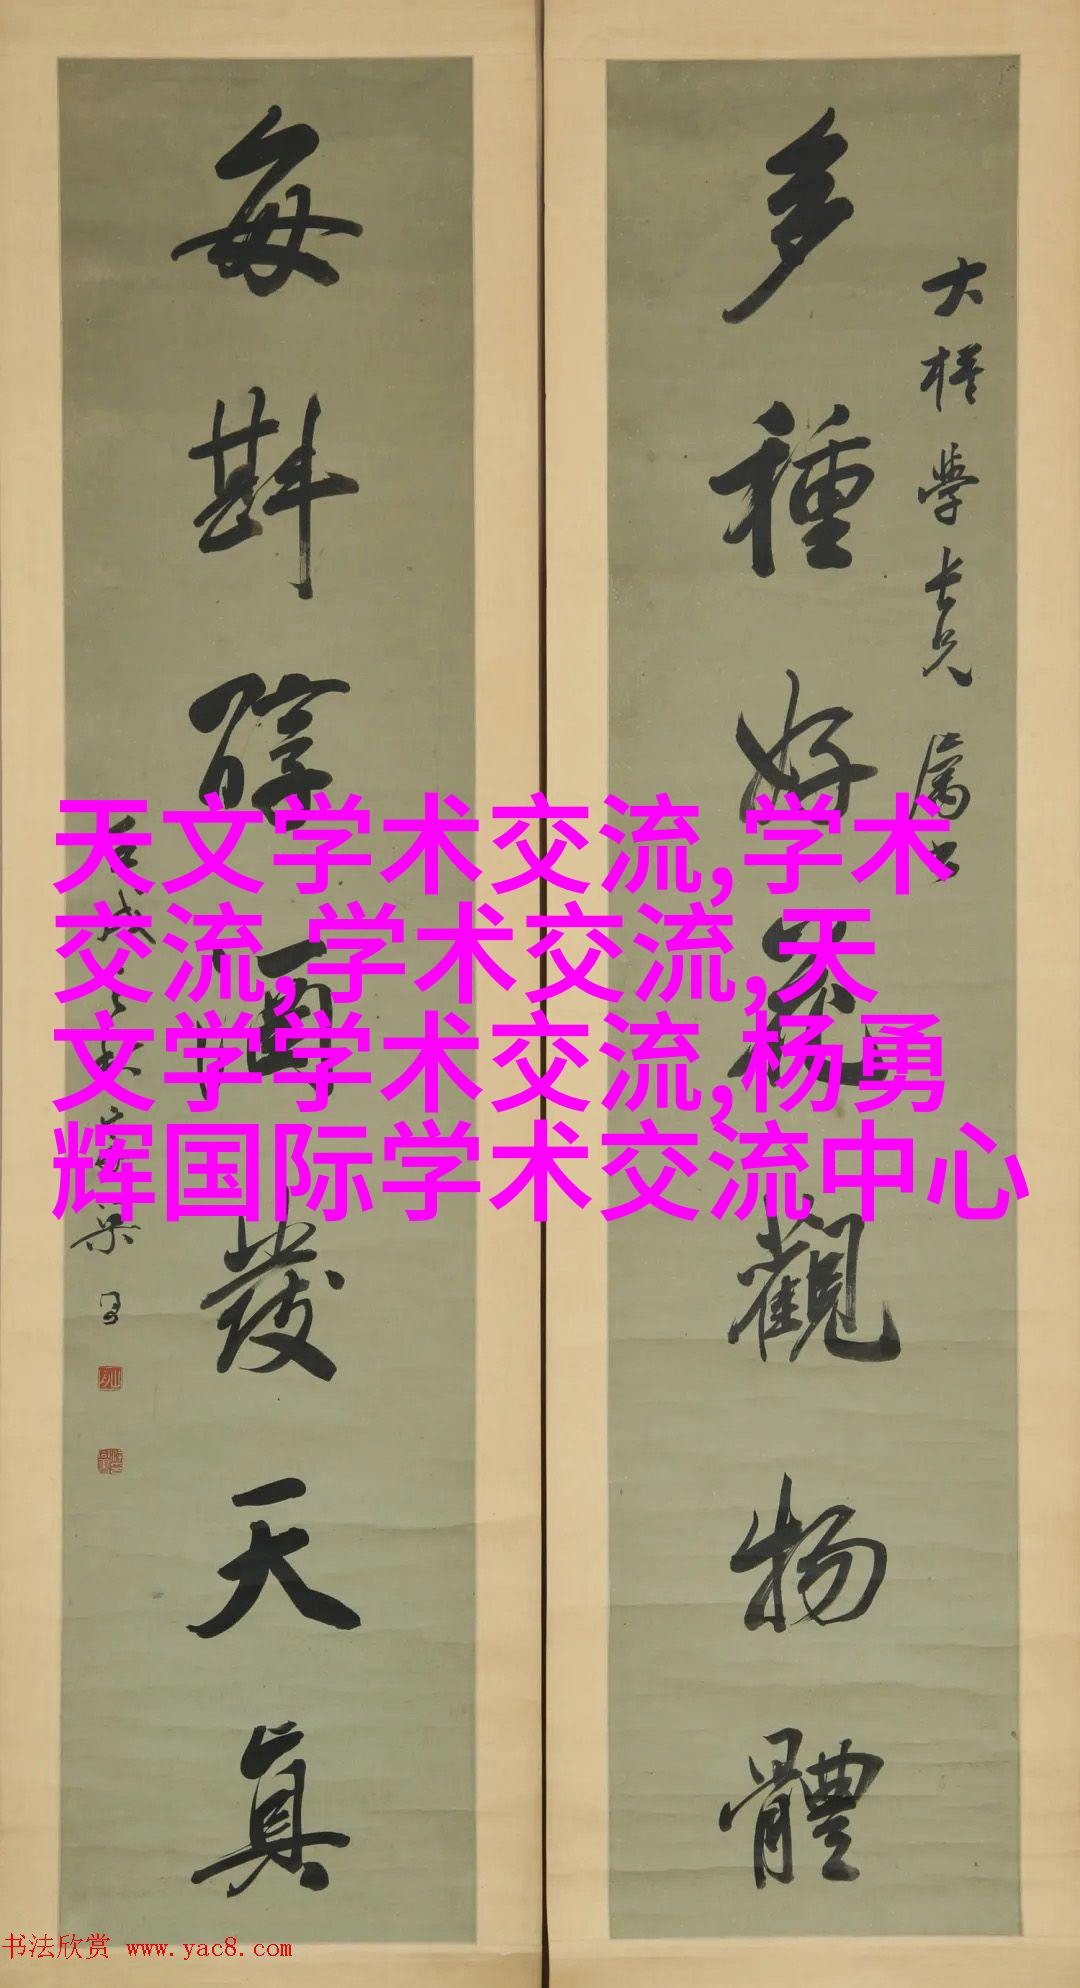 多種好花觀物體
大樣學長兄屬書
每斟醇酒發天真
天文学术交流,学术
交流,学术交流,天
文学学术交流,杨勇
辉国际学术交流中心
书法欣赏 www.yac8.com